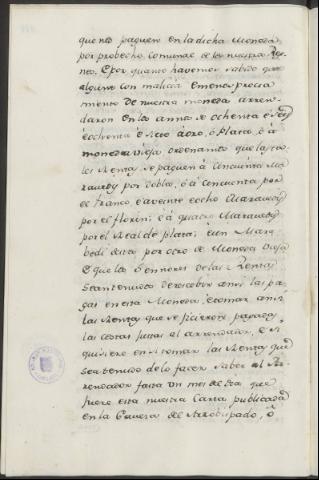 que no paguen en la dicha Moneda
por probecho Comunal de los nuestros Reg
nos. E por quanto havemos sabido que
algunos con malicia e menos precia
miento de nuestra moneda arren
daron en los annos de ochenta e seis
e ochenta e siete á oro, ó Plata, ó á
moneda vieja ordenamos que las ta
les Rentas se paguen á cincuenta Ma
ravedis por dobla, ó á cincuenta por
el Franco é á veinte e ocho Maravedis
por el florin; é á quatro Maravedis
por el Real de plata; é un Mara
bedi desta por otro de Moneda Vieja
E que los Sennores de las Rentas
sean tenudos de rescebir ansi las pa
gas en esta Moneda, e tomar ansi
las Rentas que se ficieron, pagadas
las costas justas al arrendador, e si
quisiere en si tomar las Rentas que
sea tenudo de lo facer saber al Ar
rendador fasta un mes desta que
fuere esta nuestra Carta publicada
en la Cavesa del Arzobispado, ó